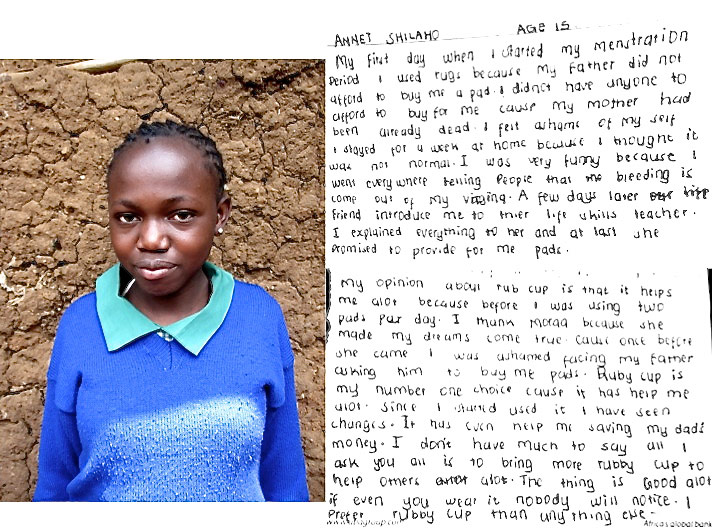 ANNET SHILAHO AGE 15
My first day when I started my menstration
period I used rugs because my father did not
afford to buy me a pad. I didnot have anyone to
afford to buy for me cause my mother had
been already dead. I felt ashame of my self
I stayed for a week at home because I thought it
was not normal. I was very funny because I
went every where telling people that the bleeding is
come out of my viaging. A few days later
friend introduce me to thier life skills teacher.
I explained everything to her and at last she
promised to provide for me pads.
My opinion about rub cup is that it helps
me alot because before I was using two
pads per day. I thank Moraa because she
made my dreams come true. cause once before
she came I was ashamed facing my father
asking him to buy me pads. Ruby cup is
my number one choice cause it has help me
alot. Since I started used it I have seen
changes. It has even help me saving my dads
money. I don't have much to say all I
ask you all is to bring more rubby cup to
help others alot. The thing is Good alot
if even you wear it nobody will notice. I
Prefer rubby cup than any thing else.
Africa's global bank